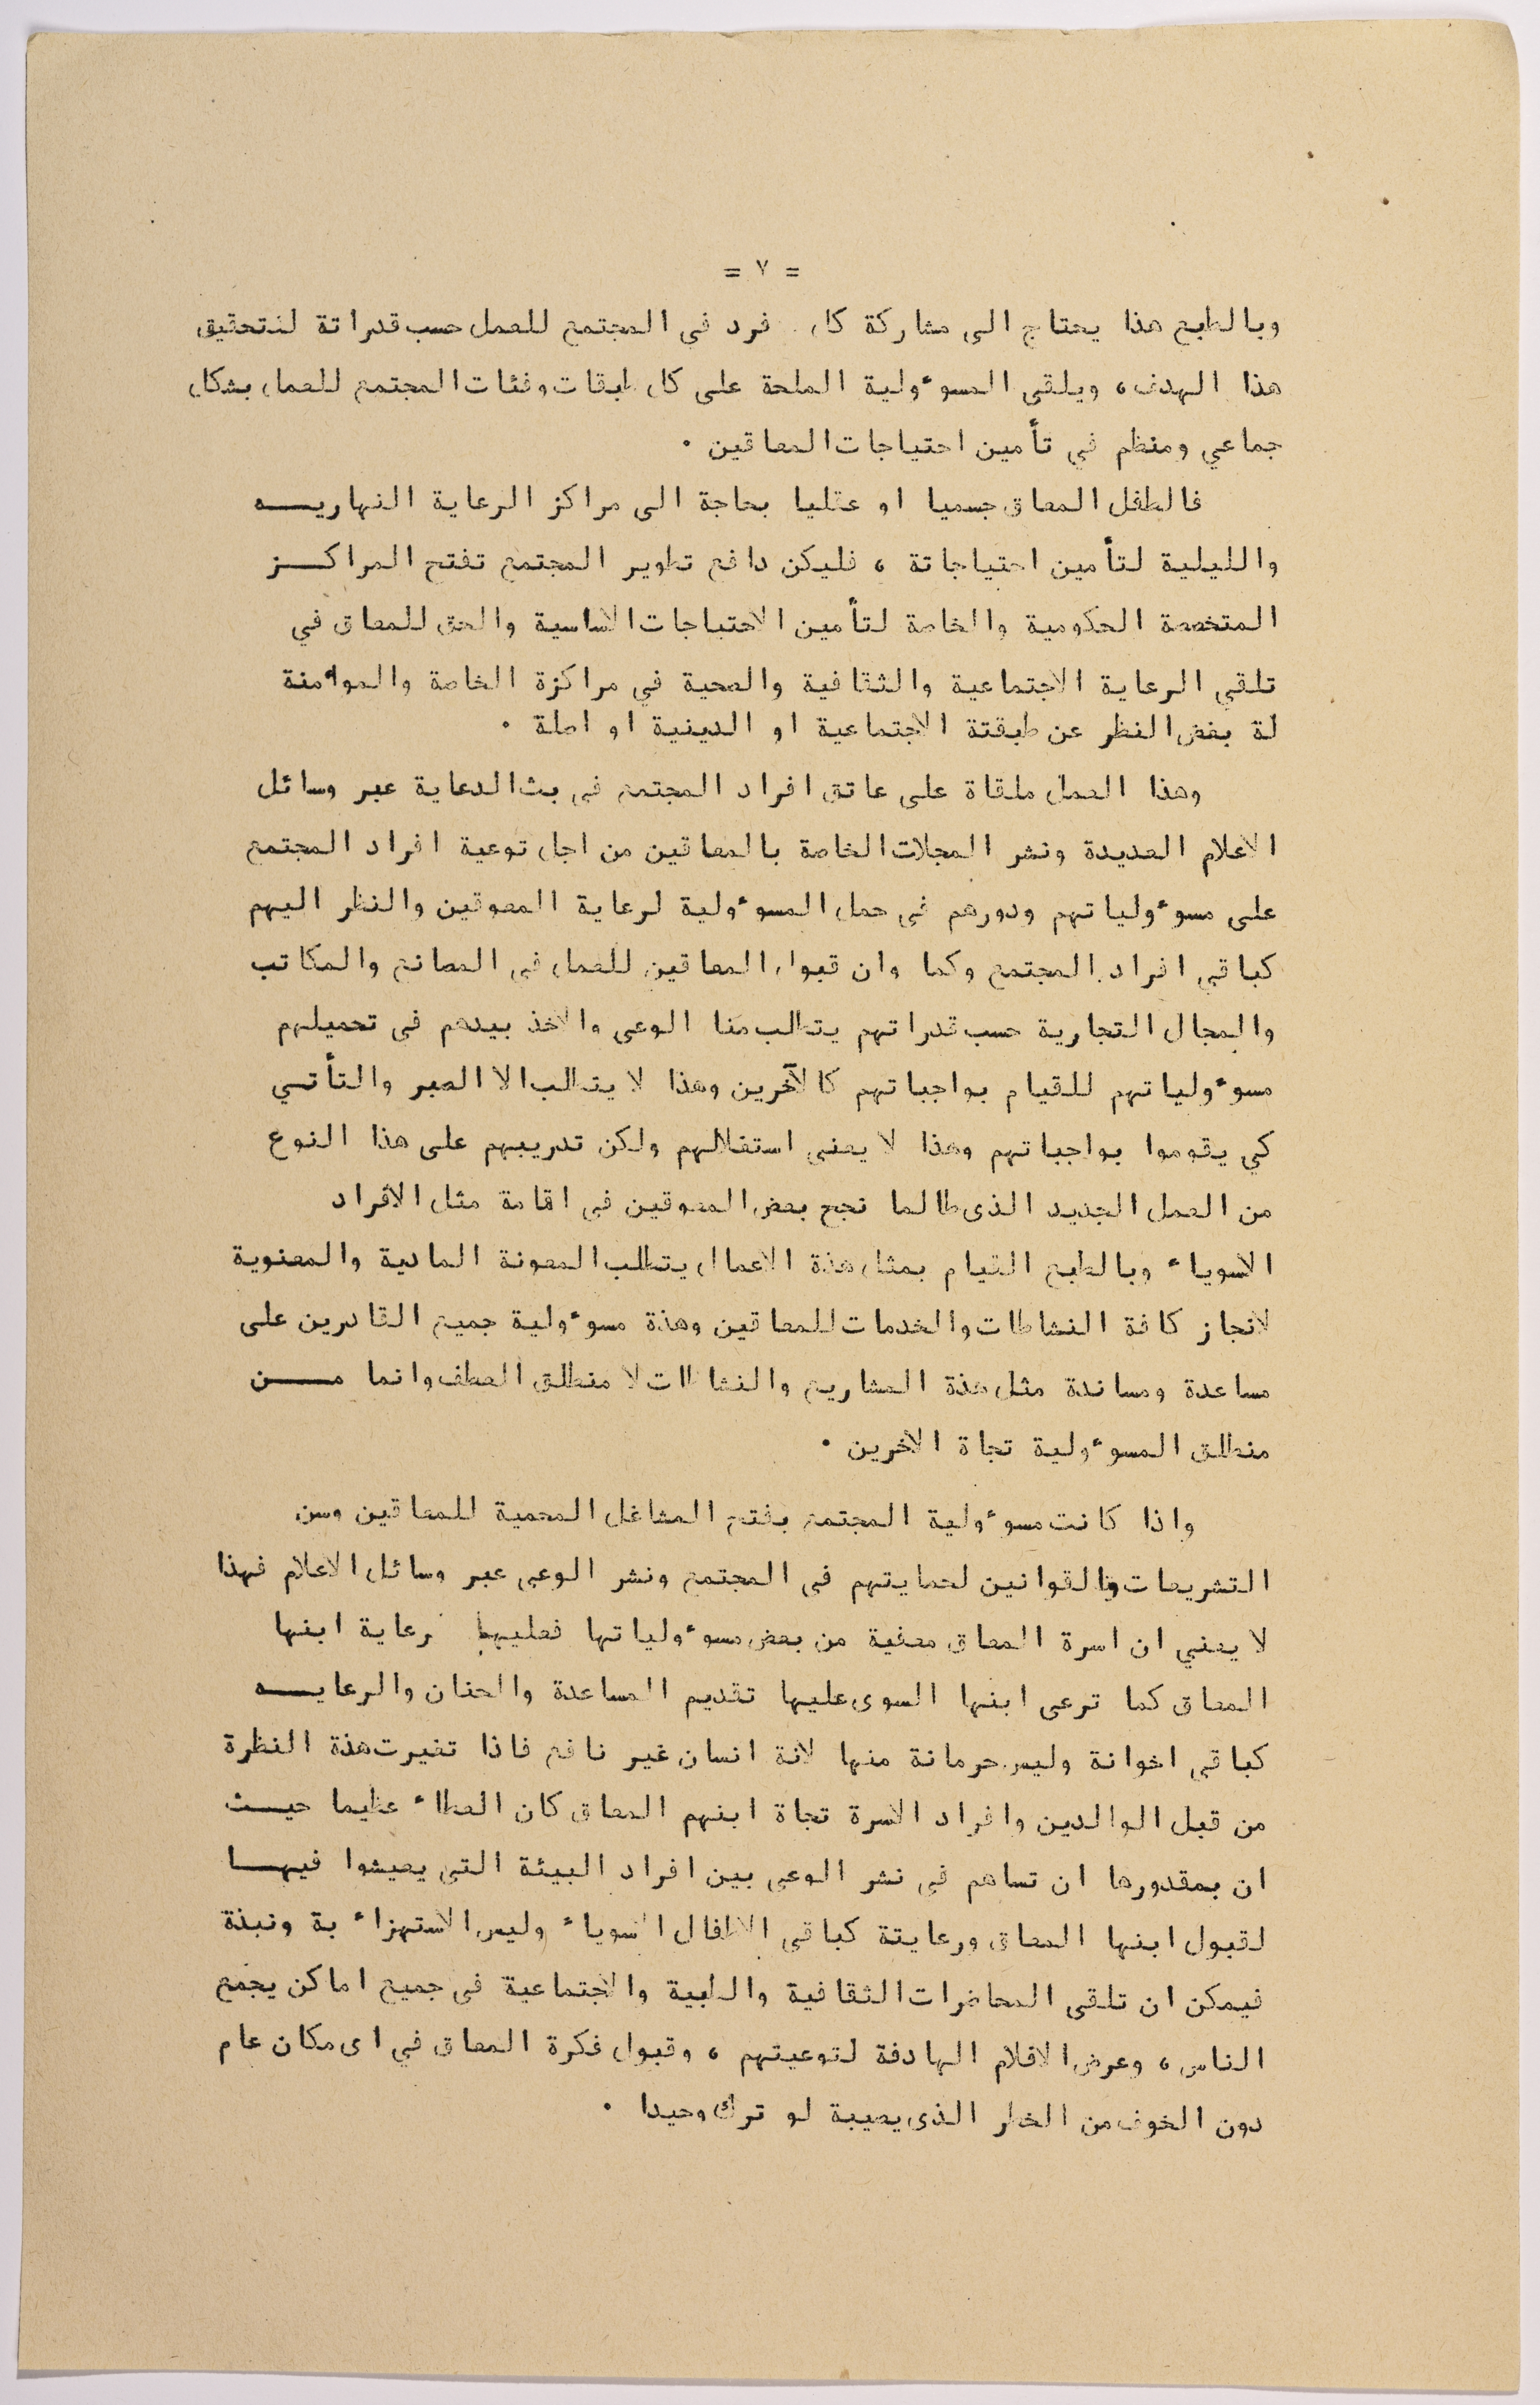 = ٧ =
وبالطبع هذا يحتاج الى مشاركة كل فرد في المجتمع للعمل حسب قدراتة لتحقيق
هذا الهدف ، ويلقى المسوءولية الملحة على كل طبقات وفئات المجتمع للعمل بشكل
جماعي ومنظم في تأمين احتياجات المعاقين ٠
فالطفل المعاق جسميا او عقليا بحاجة الى مراكز الرعاية النهاريـــه
والليلية لتأمين احتياجاتة ، فليكن دافع تطوير المجتمع تفتح المراكـــز
المتخصصة الحكومية والخاصة لتأمين الاحتياجات الاساسية والحق للمعاق في
تلقي الرعاية الاجتماعية والثقافية والصحية في مراكزة الخاصة والموءمنة
لة بغض النظر عن طبقتة الاجتماعية او الدينية او اصلة ٠
وهذا العمل ملقاة على عاتق افراد المجتمع في بث الدعاية عبر وسائل
الاعلام العديدة ونشر المجلات الخاصة بالمعاقين من اجل توعية افراد المجتمع
على مسوءولياتهم ودورهم في حمل المسوءولية لرعاية المعوقين والنظر اليهم
كباقي افراد المجتمع وكما وان قبول المعاقين للعمل في المصانع والمكاتب
والمجال التجارية حسب قدراتهم يتطلب منا الوعى والاخذ بيدهم في تحميلهم
مسوءولياتهم للقيام بواجباتهم كالآخرين وهذا لا يتطلب الا الصبر والتأتـي
كي يقوموا بواجباتهم وهذا لا يعني استغلالهم ولكن تدريبهم على هذا النوع
من العمل الجديد الذى طالما نجح بعض المعوقين في اقامة مثل الافراد
الاسوياء وبالطبع القيام بمثل هذة الاعمال يتطلب المعونة المادية والمعنوية
لانجاز كافة النشاطات والخدمات للمعاقين وهذة مسوءولية جميع القادرين على
مساعدة ومساندة مثل هذة المشاريع والنشاطات لا منطلق العطف وانما مـــن
منطلق المسوءولية تجاة الآخرين ٠
واذا كانت مسوءولية المجتمع بفتح المشاغل المحمية للمعاقين وسن
التشريعات والقوانين لحمايتهم في المجتمع ونشر الوعي عبر وسائل الاعلام فهذا
لا يعني ان اسرة المعاق معفية من بعض مسوءولياتها فعليها رعاية ابنها
المعاق كما ترعى ابنها السوى عليها تقديم المساعدة والحنان والرعايـــه
كباقي اخوانة وليس حرمانة منها لانة انسان غير نافع فاذا تغيرت هذة النظرة
من قبل الوالدين وافراد الاسرة تجاة ابنهم المعاق كان العطاء عظيما حيـــث
ان بمقدورها ان تساهم في نشر الوعي بين افراد البيئة التي يعيشوا فيهـــا
لقبول ابنها المعاق ورعايتة كباقي الاطفال الاسوياء وليس الاستهزاء بة ونبذة
فيمكن ان تلقى المحاضرات الثقافية والطبية والاجتماعية في جميع اماكن يجمع
الناس ، وعرض الافلام الهادفة لتوعيتهم ، وقبول فكرة المعاق في اى مكان عام
دون الخوف من الخطر الذى يصيبة لو ترك وحيدا ٠